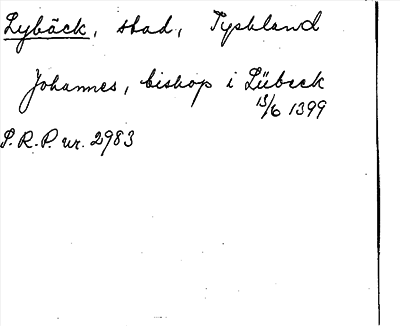 Lybäck, stad, Tyskland
Johannes, biskop i Lübeck
13/6 1399
S.R.P. nr. 2983